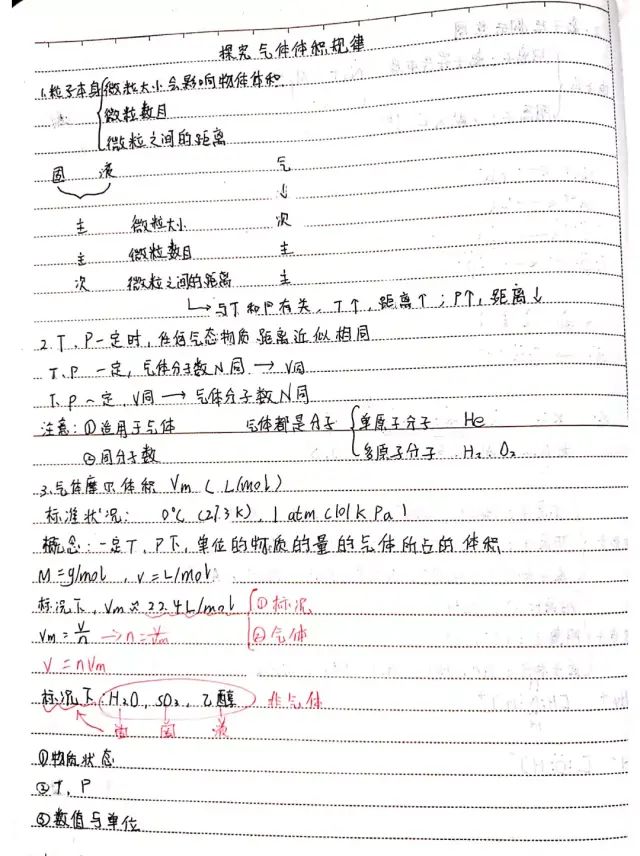 探究气体体积规律
1.粒子本身{微粒大小会影响物体体积
微粒数目
微粒之间的距离
固 液 气
↓
主 微粒大小 次
主 微粒数目 主
次 微粒之间的距离 主
↳与T和P有关、T↑，距离↑；P↑，距离↓
2.T、P一定时，任何气态物质距离近似相同
T、P 一定，气体分子数N同 → V同
T、P 一定，V同 → 气体分子数N同
注意：①适用于气体 气体都是分子{单原子分子 He
②同分子数 多原子分子 H₂ O₂
3.气体摩尔体积 Vm (L/mol)
标准状况： 0℃ (273K)、1 atm (101kPa)
概念：一定T、P下，单位的物质的量的气体所占的体积
M=g/mol、V=L/mol
标况下、Vm≈22.4L/mol {①标况
Vm=V/n → n=V/Vm ②气体
V=nVm
标况下：H₂O、SO₃、乙醇 非气体
固 固 液
①物质状态
②T、P
③数值与单位